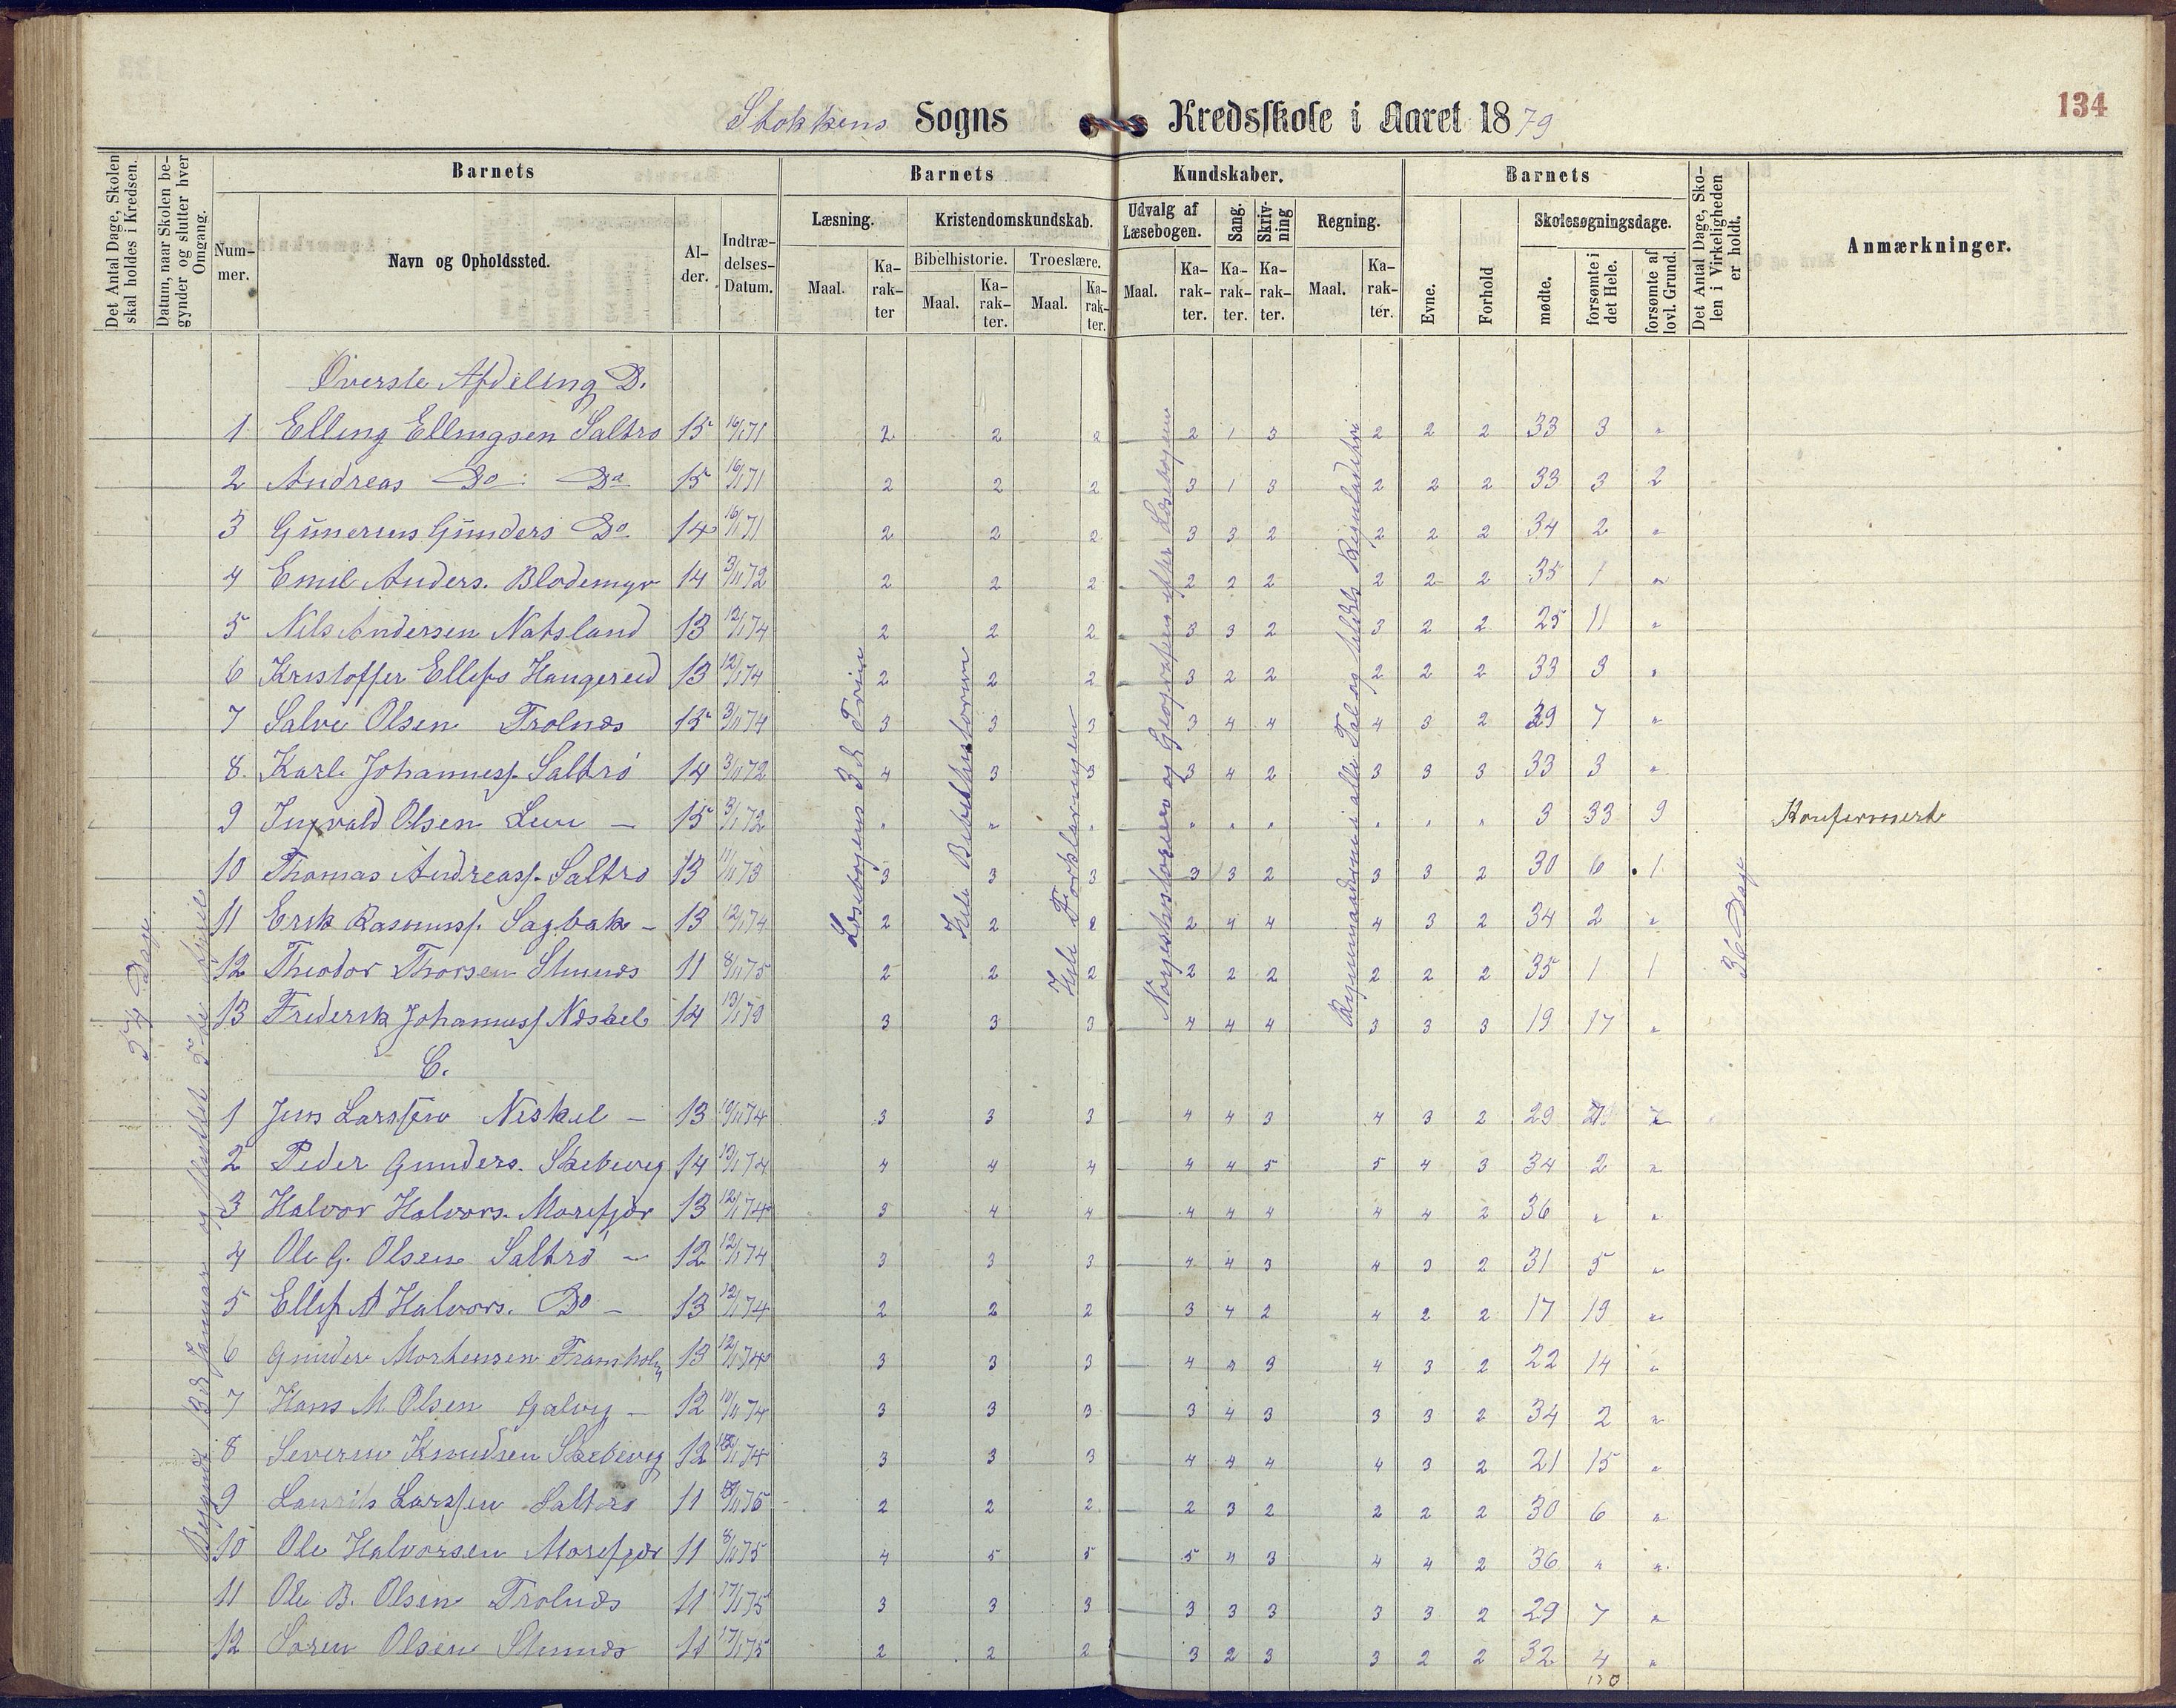 134
Stokkens Sogns Kredsskole i Aaret 1879
Det Antal Dage, Skolen skal holdes i Kredsen.
Datum, naar Skolen begynder og slutter hver Omgang.
Barnets
Nummer.
Navn og Opholdssted.
Alder.
Indtrædelses-Datum.
Barnets Kundskaber.
Læsning.
Maal.
Karakter
Kristendomskundskab.
Bibelhistorie.
Maal.
Karakter.
Troeslære.
Maal.
Karakter.
Udvalg af Læsebogen.
Maal.
Karakter.
Sang.
Karakter.
Skrivning
Karakter.
Regning.
Maal.
Karakter.
Barnets
Evne.
Forhold
Skolesøgningsdage.
mødte.
forsømte i det Hele.
forsømte af lovl. Grund.
Det Antal Dage, Skolen i Virkeligheden er holdt.
Anmærkninger.
54 Dage.
Begyndt 13de Januar og sluttet 5te April
Læsebogens 3d Trin
Hele Bibelhistorien
Hele Forklaringen
Norgeshistorien og Geografien efter Læsebogen
36 Dage
Øverste Afdeling D.
1 Elling Ellingsen Saltrø 15 16/1 71 2 2 2 2 1 3 2 2 2 33 3 "
2 Andreas Do: Do 15 16/1 71 2 2 2 3 1 3 2 2 2 33 3 2
3 Gunerius Gunders Do 14 16/1 71 2 2 2 3 3 2 2 2 2 34 2 "
4 Emil Anders. Blodemyr 14 3/11 72 2 2 2 2 2 2 2 2 2 35 1 "
5 Nils Andersen Natsland 13 12/1 74 2 2 2 3 3 2 3 2 2 25 11 "
6 Kristoffer Ellefs Haugereid 13 12/1 74 2 2 2 3 2 2 2 2 2 33 3 "
7 Salve Olsen Trolnæs 15 3/11 74 3 3 3 3 4 4 4 3 2 29 7 "
8. Karl Johanness. Saltrø 14 3/11 72 4 3 3 3 4 2 3 3 3 33 3 "
9 Ingvald Olsen Levi — 15 3/1 72 " " " " " " " " " 3 33 9 Konfermert
10 Thomas Andreass. Saltrø 13 11/1 73 3 3 3 3 3 2 3 3 2 30 6 1
11 Erik Rasmuss. Sagbak — 13 12/1 74 2 2 2 2 4 4 4 3 2 34 2 "
12 Theodor Thorsen Stunæs 11 8/11 75 2 2 2 2 2 2 2 2 2 35 1 1
13 Frederik Johanness Næskel 14 13/1 73 3 3 3 4 4 4 3 3 3 19 17 "
C.
1 Jens Larssen Neskel — 13 10/11 74 3 3 3 4 4 3 4 3 2 29 7 "
2 Peder Gunders. Skebeveg 14 13/1 74 4 4 4 4 4 5 5 4 3 34 2 "
3 Halvor Halvors. Morefjær 13 12/1 74 3 4 4 4 4 4 4 4 2 36 " "
4 Ole G. Olsen Saltrø — 12 12/1 74 3 3 3 4 4 3 4 3 2 31 5 "
5 Ellef A Halvors. Do — 13 12/1 74 2 2 2 3 4 2 4 2 2 17 19 "
6 Gunder Mortensen Framholm 13 12/1 74 3 3 3 4 3 3 4 3 2 22 14 "
7 Hans M. Olsen Galvig — 12 10/11 74 3 3 3 3 4 3 3 3 2 34 2 "
8 Severin Knudsen Skebeveg 12 74 3 3 3 4 4 4 4 3 2 21 15 "
9 Laurits Larssen Saltrø 11 75 2 2 2 2 3 2 2 2 2 30 6 "
10 Ole Halvorsen Morefjær 11 8/11 75 4 5 5 5 4 3 4 4 2 36 " "
11 Ole B. Olsen Trolnæs 11 17/1 75 3 3 3 3 3 3 3 3 2 29 7 "
12 Søren Olsen Stunæs 11 17/1 75 2 2 2 3 2 3 3 2 2 32 4 "